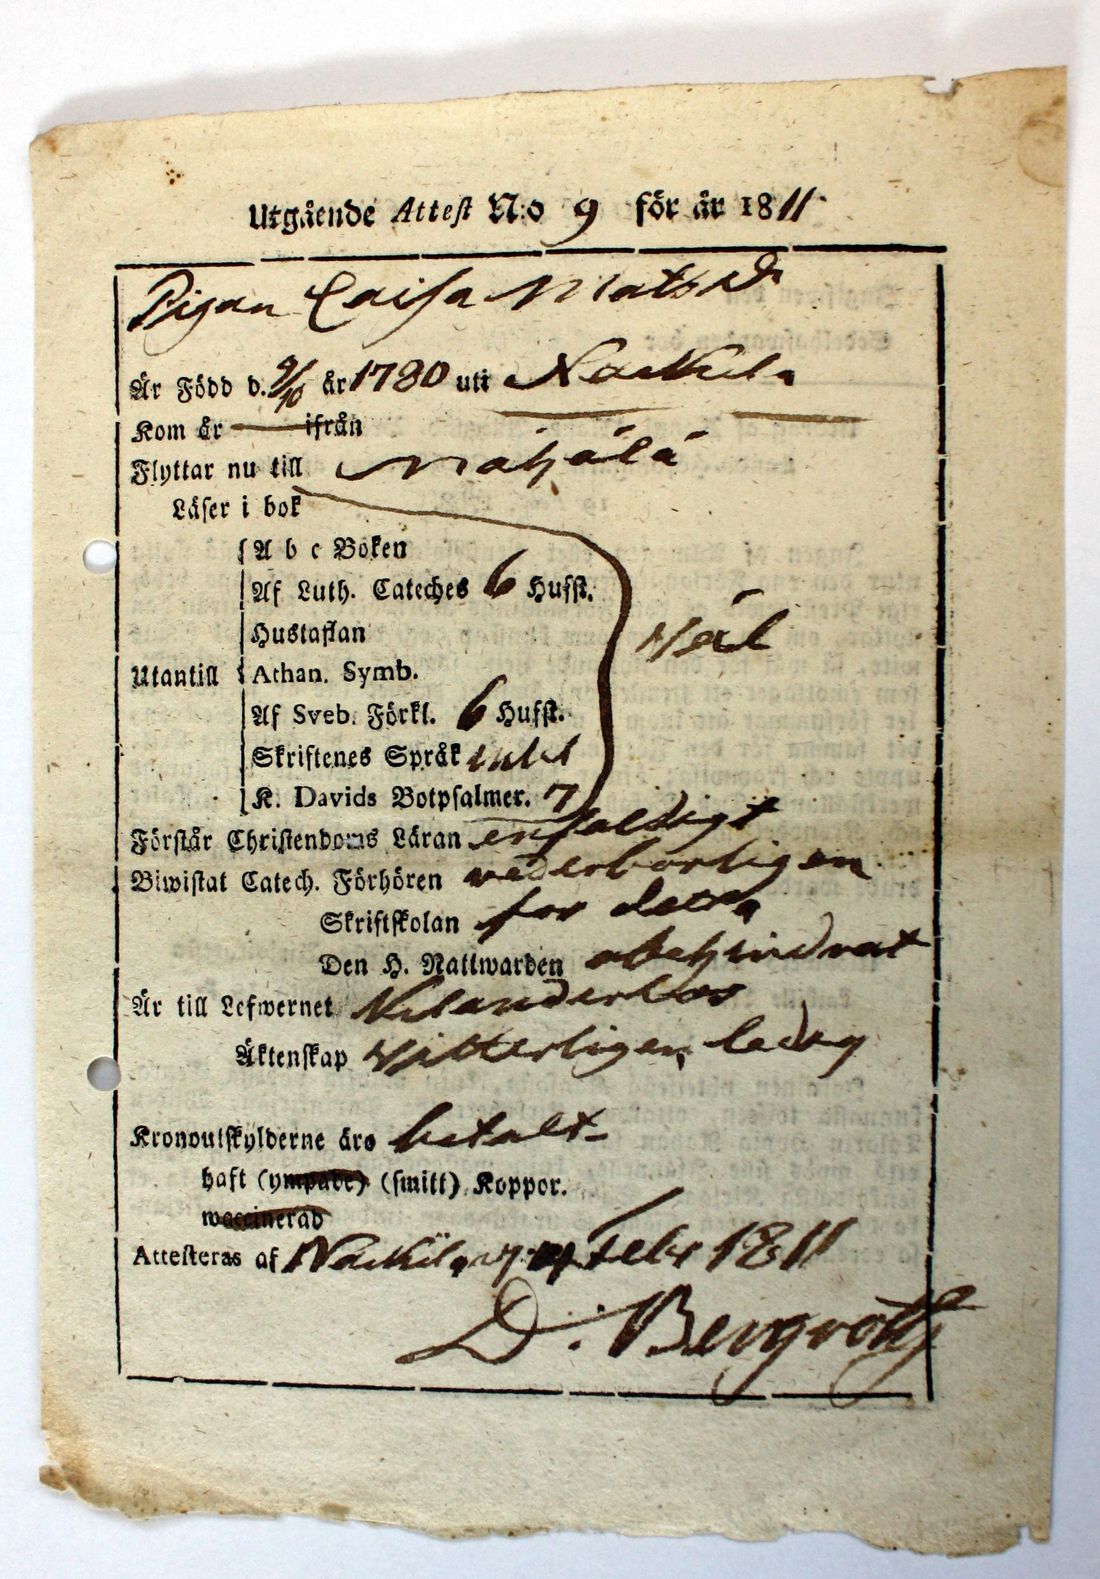 Utgående Attest N:o 9 för år 1811
Pigan Caisa Matsdr
Är Född d. 9/10 år 1780 uti Nackila
Kom år — ifrån
Flyttar nu till
Läser i bok
A b c Boken
Af Luth. Cateches 6 Hufst.
Hustaflan
Väl
Utantill Athan. Symb.
Af Sveb. Förkl. 6 Hufst.
Skriftenes Språk intet
K. Davids Botpsalmer. 7
Förstår Christendoms Läran enfaldigt
Biwistat Catech. Förhören vederborligen
Skriftskolan for detta
Den H. Nattwarden obehindrat
Är till Lefwernet
Äktenskap Vitterligen ledig
Kronoutskylderne äro betalt
haft (ympade) (smitt) Koppor.
waccinerad
Attesteras af Nackila Febr 1811
D. Bergroth